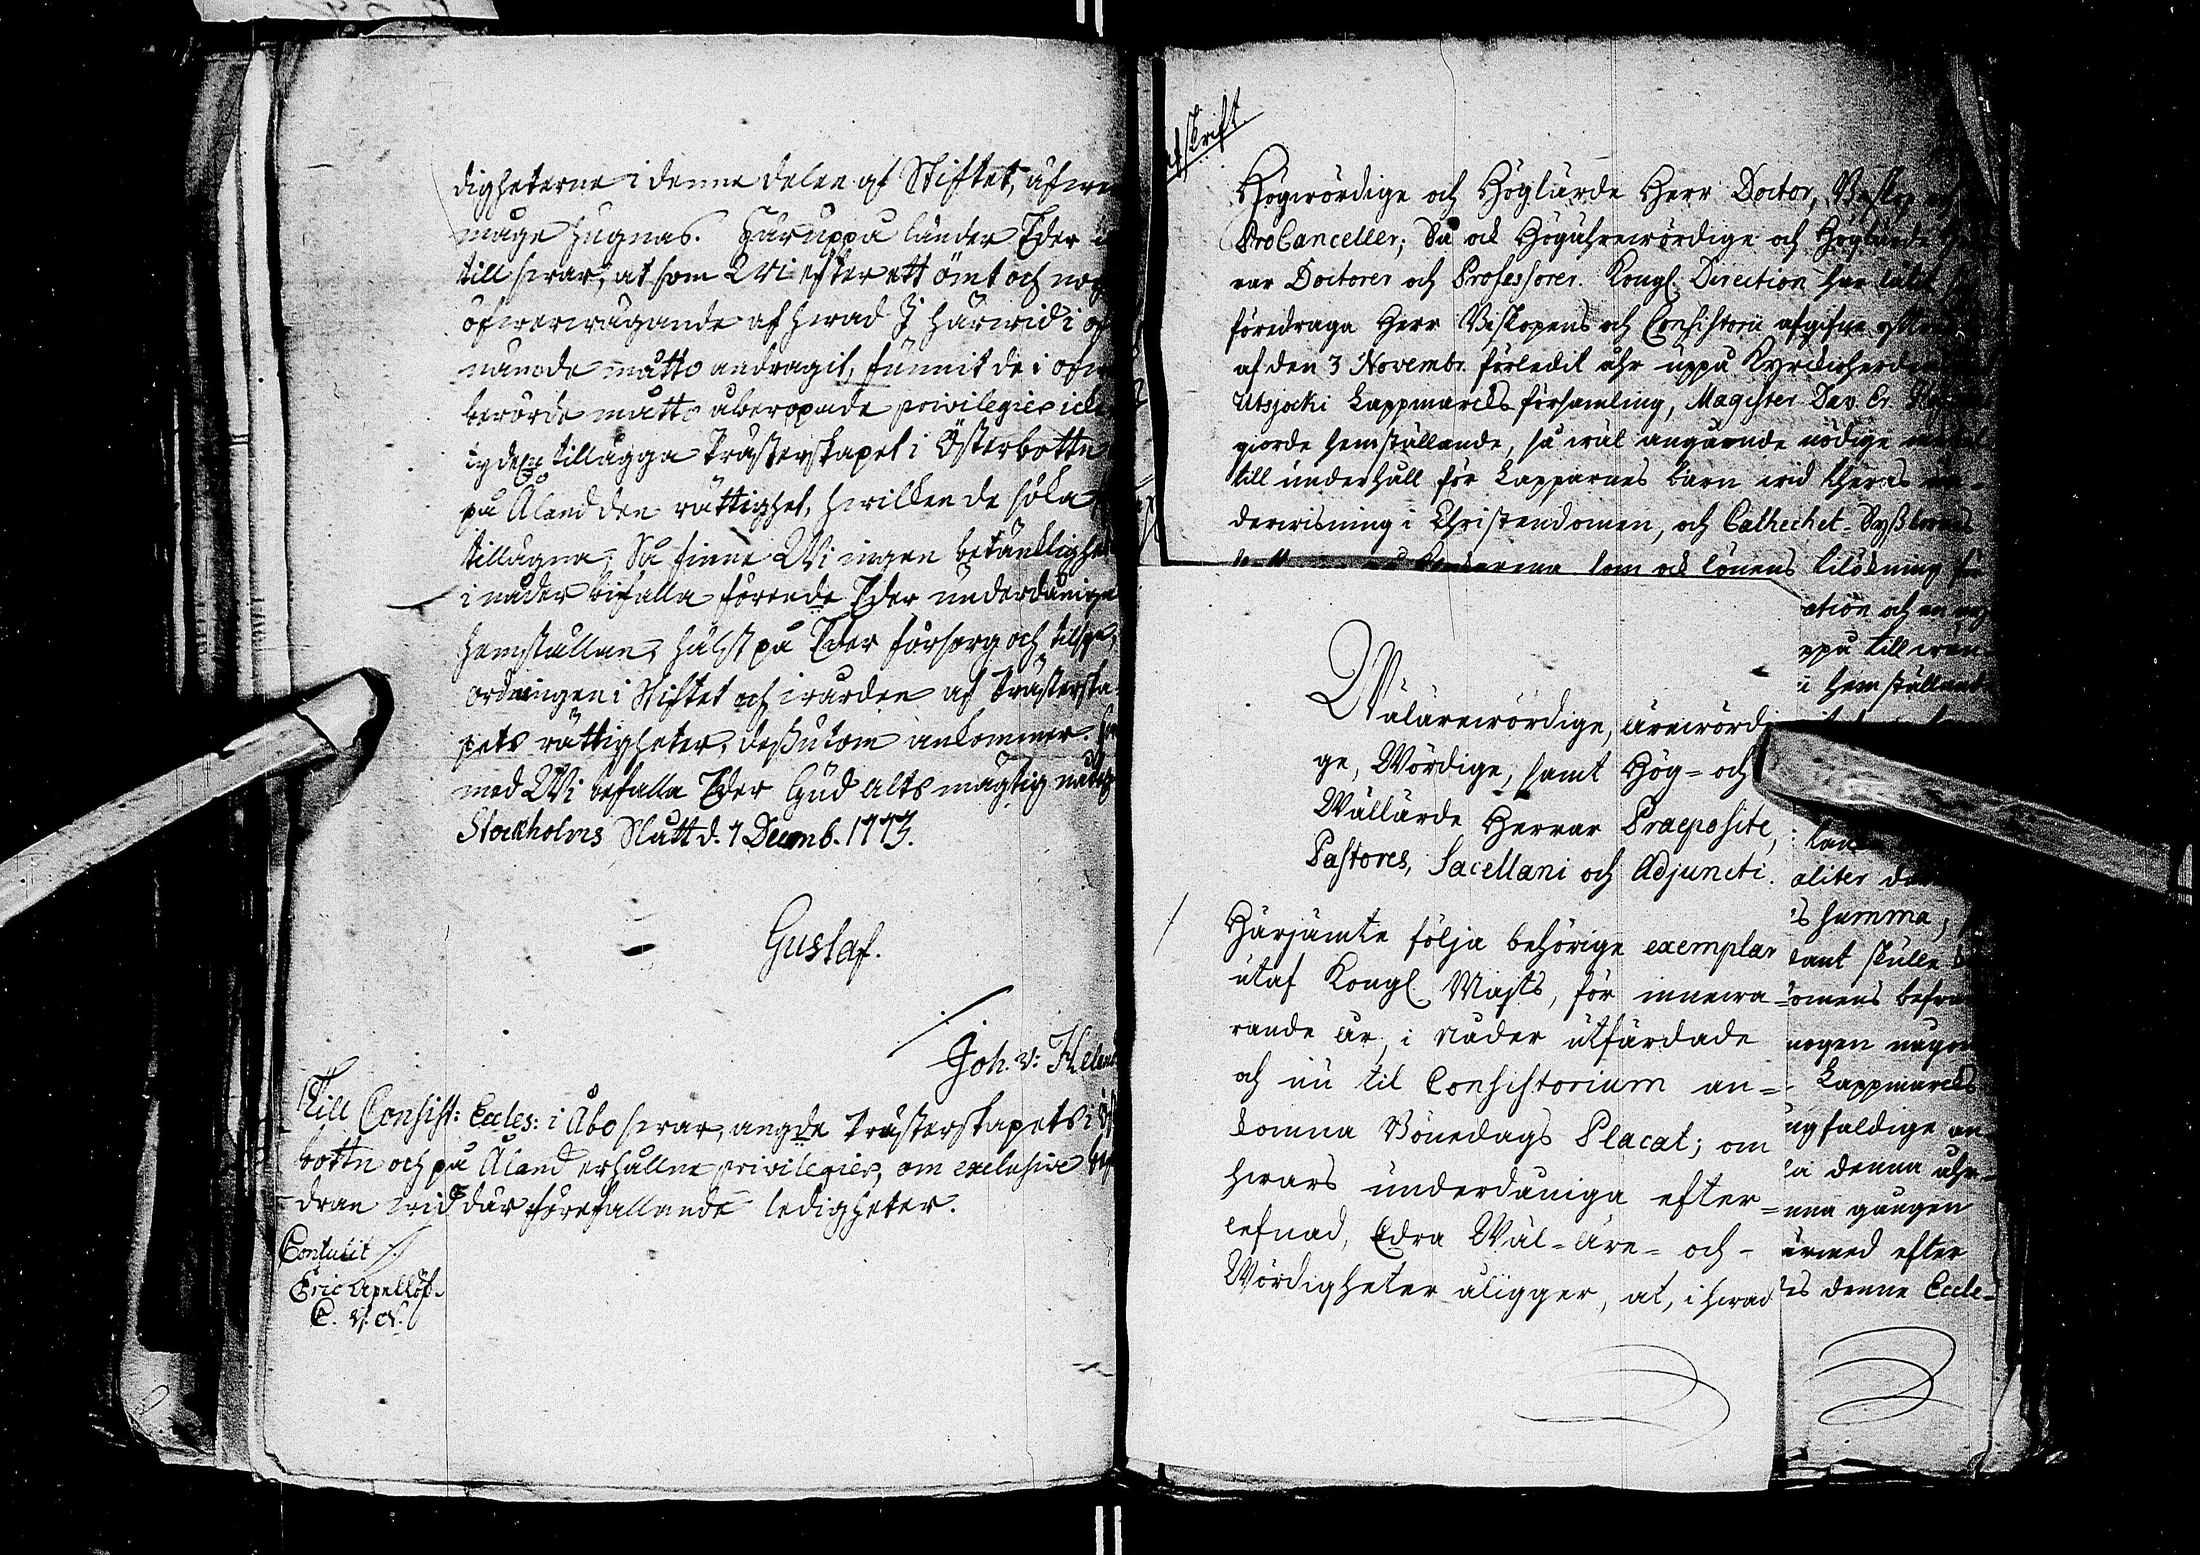 digheterne i denne delen af Stiftet, äfwen
måge hugnas. Häruppå länder Eder
till swar, at som Wi efter ett ömt och noga
öfwerwägande af hwad I härwid i of
nämde måtto andragit, funnit de i ofwan
berörde mått åberopade privilegier icke
tillägga Prästerskapet i Österbottn
på Åland den rättighet, hwilken de söka
tillägna; Så finne Wi ingen betänklighet
i nåder bifalla förende Eder underdåniga
hemställan, hälst på Eder försorg och tillse,
ordningen i Stiftet och wården af Prästerska-
pets rättigheter, dessutom ankommer.
med Wi befalle Eder Gud alts mägtig
Stockholms Slott d. 7 Decemb. 1773.
Gustaf.
Joh. v:
Till Consist: Eccles: i Åbo swar, angde Prästerskapets i Öster
bottn och på Åland erhållne privilegier, om exclusive
dran wid där förefallande ledigheter.
Contulit
Eric Apellöf.
afskrift.
Högwördige och Höglärde Herr Doctor, Biskop och
ProCanceller; Så ock Högährewördige och Höglärde
rar Doctorer och Professorer. Kongl. Direction har låtit
föredraga Herr Biskopens och Consistorii afgifne
af den 3 Novembr. förledit åhr uppå Kyrckoherden
Utsjocki Lappmarcks församling, Magister Dav. Er.
giorde hemställande, så wäl angående nödige medel
till underhåll för Lapparnes barn wid theras un-
derwisning i Christendomen, och Cathechet-Sysslornes
som ock lönens tilökning för
ation och en
ppå till wun
i hemställande
Wälärewördige, ärewördi
ge, Wördige, samt Hög- och
Wällärde Herrar Praepositi,
Pastores, Sacellani och Adjuncti.
Härjämte följa behörige exemplar
utaf Kongl. Majts, för innewa-
rande år, i nåder utfärdade
och nu til Consistorium an-
komna Bönedags Placat; om
hwars underdåniga efter-
lefnad, Edra Wäl-Äre- och-
Wördigheter åligger, at, i hwad
aliter
s summa,
cant skulle
omens befrä
mogen någon
Lappmarcks
ngfaldige an-
denna åhr-
nna gången
ärmed efter
es denne Eccle-